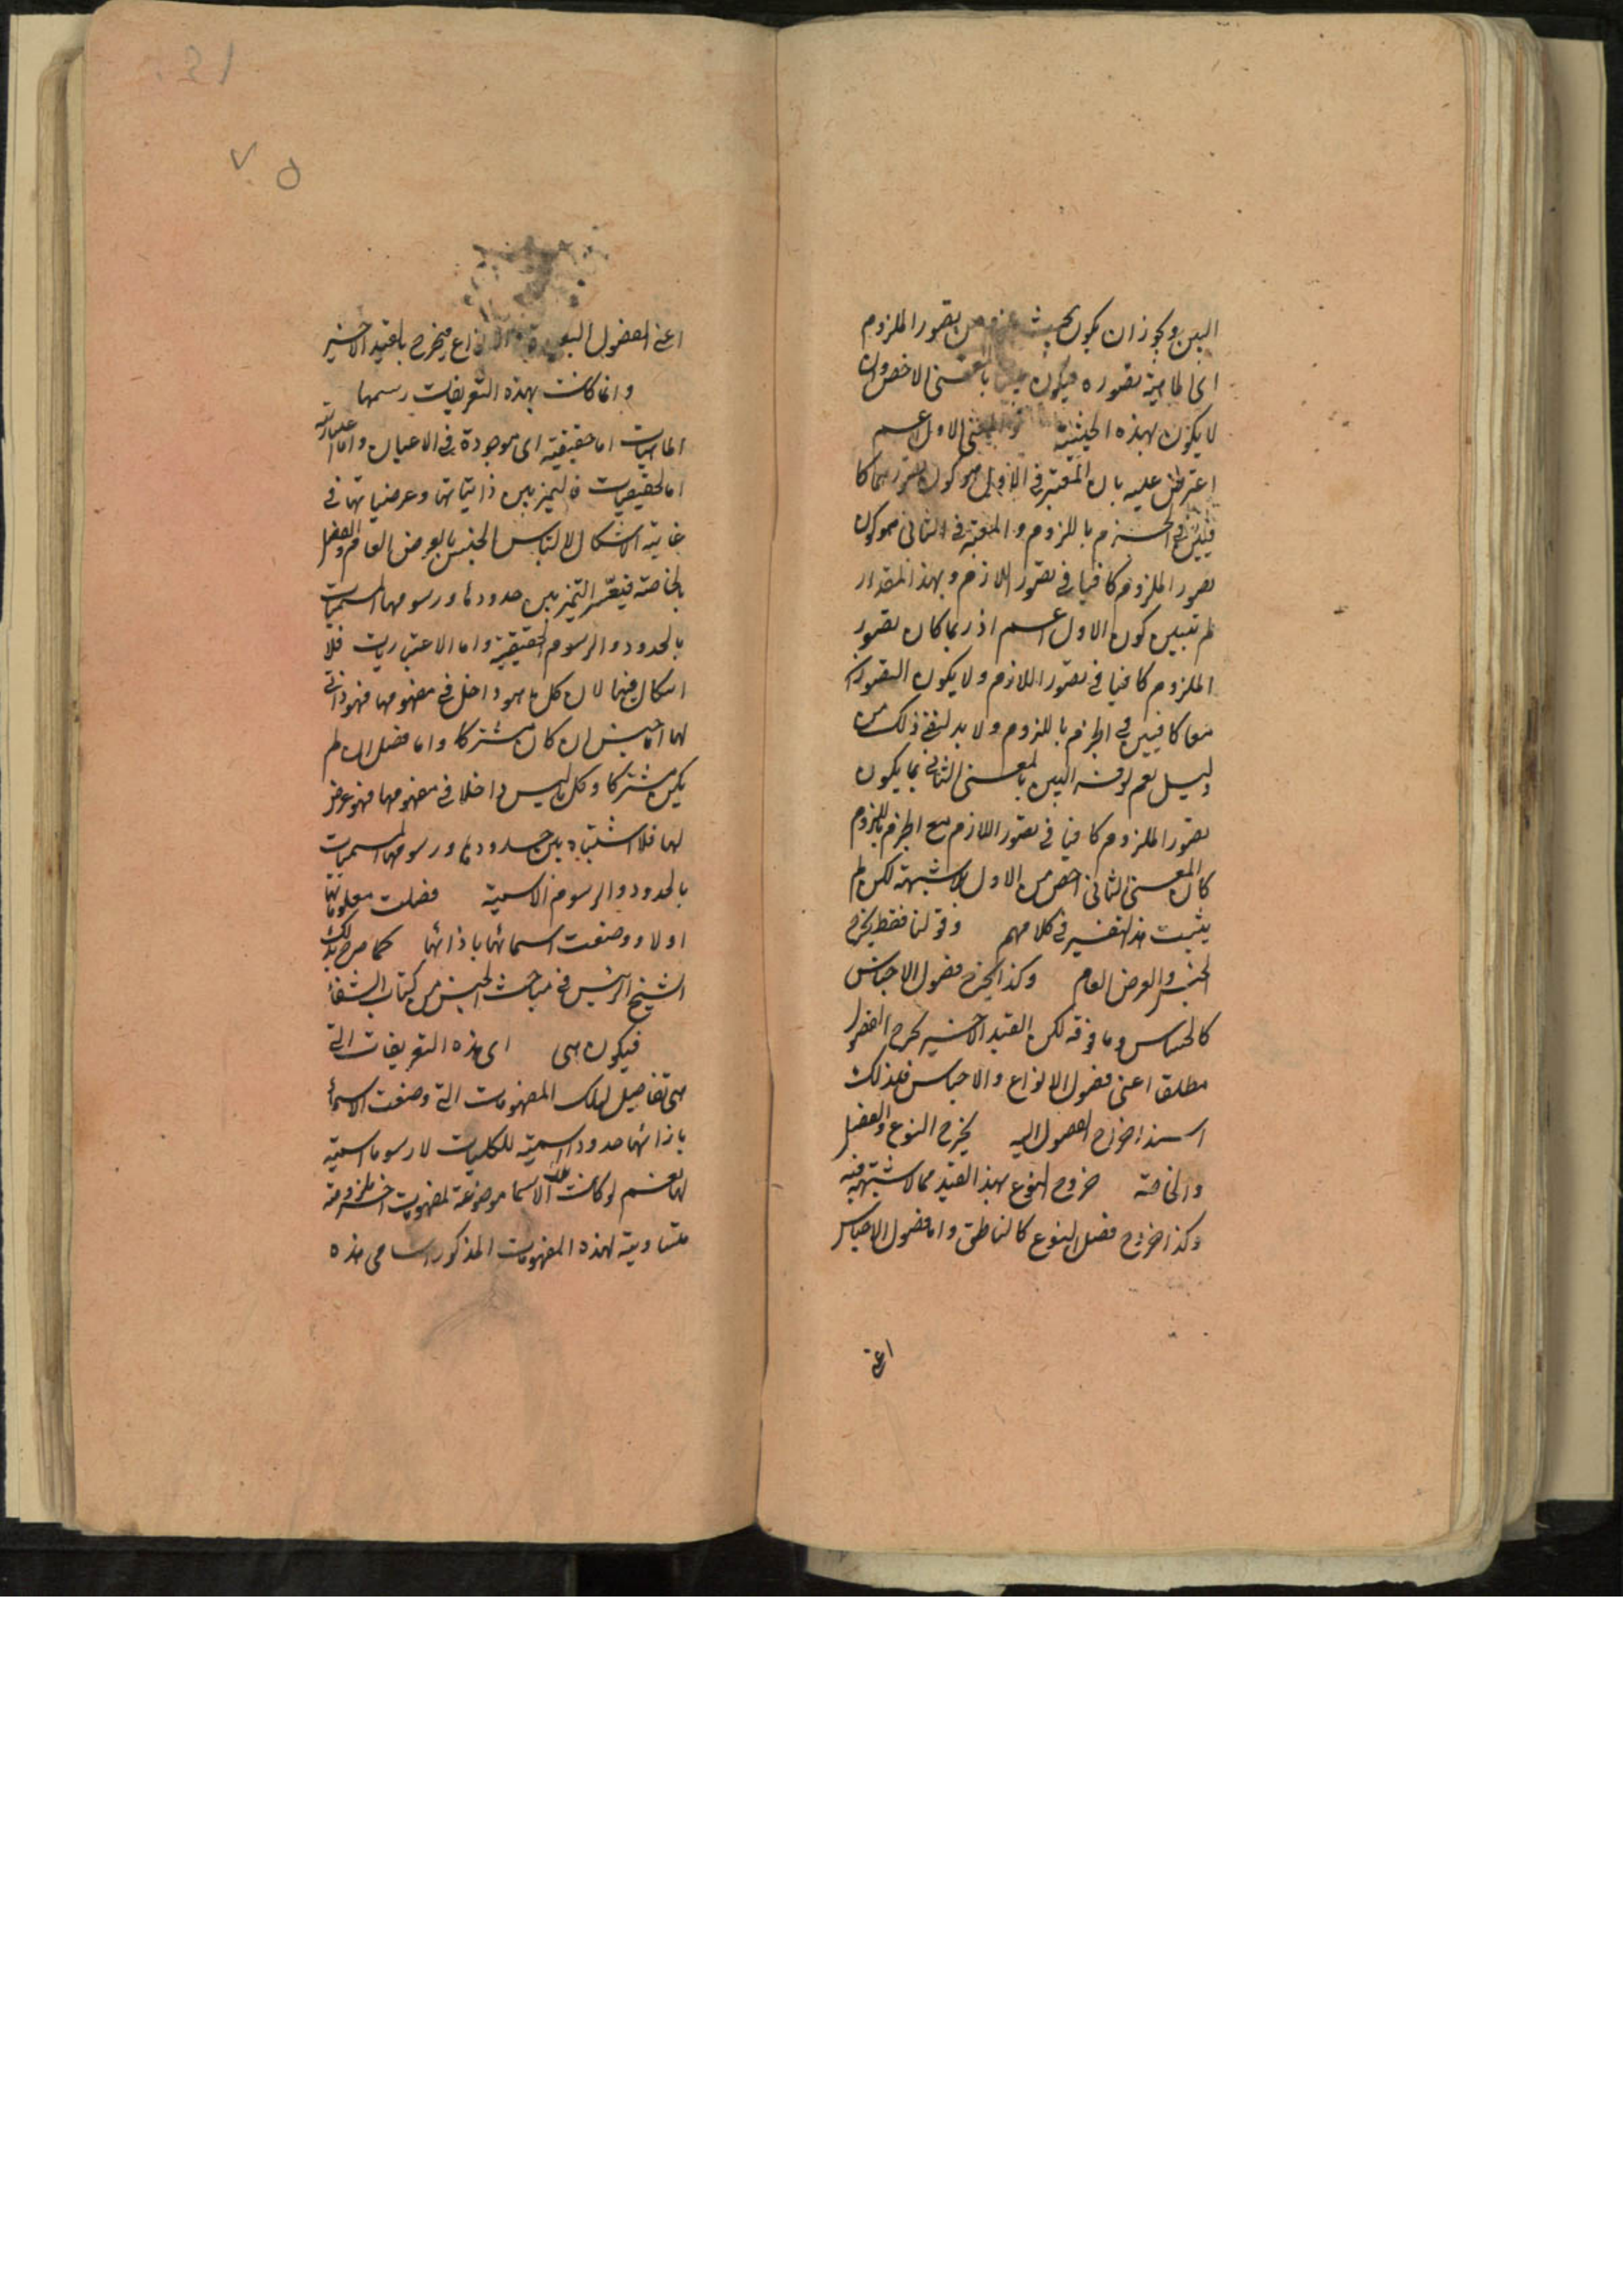 البين ويجوز ان يكون بحيث من تصور الملزوم
اى الماهية تصوره فيكون بالمعنى الاخص وان
لا يكون بهذه الحيثية والمعنى الاول اعم
اعترض عليه بان المعتبر فى الاول هو كون تصورهما كا
فيين فى الجزم باللزوم والمعتبر فى الثانى هو كون
تصور الملزوم كافيا فى تصور اللازم وبهذا المقدار
لم يتبين كون الاول اعم اذ ربما كان تصور
الملزوم كافيا فى تصور اللازم ولا يكون التصوران
معا كافيين فى الجزم باللزوم ولا بد لنفى ذلك من
دليل نعم لو فسر البين بالمعنى الثانى بما يكون
تصور الملزوم كافيا فى تصور اللازم مع الجزم باللزوم
كان المعنى الثانى اخص من الاول بلا شبهة لكن لم
يثبت هذا التفسير فى كلامهم وقولنا فقط يخرج
الجنس والعرض العام وكذا يخرج فصول الاجناس
كالحساس وما فوقه لكن القيد الاخير يخرج الفصول
مطلقا اعنى فصول الانواع والاجناس فلذلك
اسند اخراج الفصول اليه يخرج النوع والفصل
والخاصة خروج النوع بهذا القيد مما لا شبهة فيه
وكذا خروج فصل النوع كالناطق واما فصول الاجناس
اعنى
اعنى الفصول البعيدة الانواع فيخرج بالقيد الاخير
وانما كانت بهذه التعريفات رسمها
الماهيات اما حقيقية اى موجودة فى الاعيان واما اعتبارية
اما الحقيقيات فالتميز بين ذاتياتها وعرضياتها فى
غاية الاشكال لالتباس الجنس بالعرض العام والفصل
بالخاصة فيتعسر التميز بين حدودها ورسومها المسميات
بالحدود والرسوم الحقيقية واما الاعتباريات فلا
اشكال فيها لان كل ما هو داخل فى مفهومها فهو ذاتى
لها اما جنس ان كان مشتركا واما فصل ان لم
يكن مشتركا وكل ما ليس داخلا فى مفهومها فهو عرضى
لها فلا اشتباه بين حدودها ورسومها المسميات
بالحدود والرسوم الاسمية فصلت معلوماتها
اولا ووضعت اسمائها باذائها كما صرح بذلك
الشيخ الرئيس فى مباحث الجنس من كتاب الشفاء
فيكون هى اى هذه التعريفات التى
هى تفاصيل لتلك المفهومات التى وضعت الاسماء
بازائها حدودا اسمية للكليات لا رسوما اسمية
لها نعم لو كانت تلك الاسما موضوعة لمفهومات اخر ملزومة
متساوية لهذه المفهومات المذكورة اسامى هذه